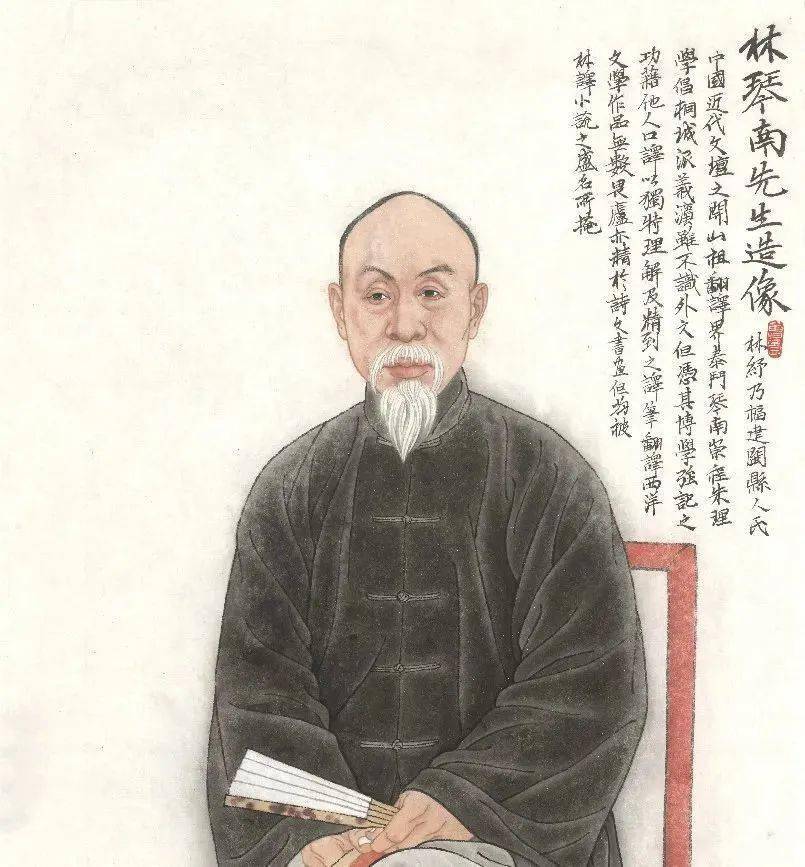 林琴南先生造像
林紓乃福建閩縣人氏
中國近代文壇之開山祖翻譯界泰鬥琴南崇程朱理
學倡桐城派義法雖不識外文但憑其博學強記之
功藉他人口譯以獨特理解及精到之譯筆翻譯西洋
文學作品無數畏廬亦精於詩文書畫但均被
林譯小説之盛名所掩